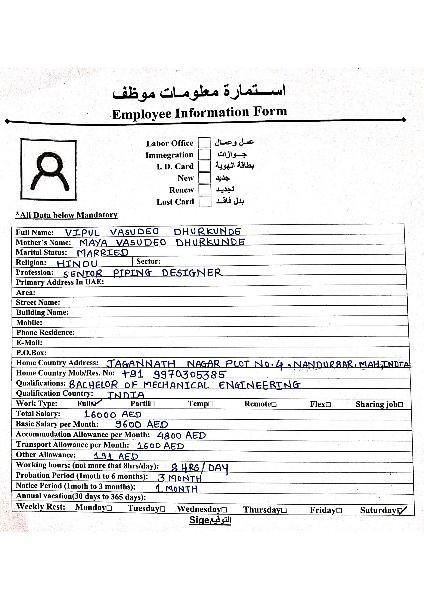 استمارة معلومات موظف
Employee Information Form
Labor Office عمل وعمال
Immegration جوازات
I. D. Card بطاقة الهوية
New جديد
Renew تجديد
Lost Card بدل فاقد
*All Data below Mandatory
Full Name: VIPUL VASUDEO DHURKUNDE
Mother's Name: MAYA VASUDEO DHURKUNDE
Marital Status: MARRIED
Religion: HINDU Sector:
Profession: SENIOR PIPING DESIGNER
Primary Address In UAE:
Area:
Street Name:
Building Name:
Mobile:
Phone Residence:
E-Mail:
P.O.Box:
Home Country Address: JAGANNATH NAGAR PLOT NO.4, NANDURBAR, MAH, INDIA
Home Country Mob/Res. No: +91 9970305385
Qualifications: BACHELOR OF MECHANICAL ENGINEERING
Qualification Country: INDIA
Work Type: Full Parttl Temp Remote Flex Sharing job
Total Salary: 16000 AED
Basic Salary per Month: 9600 AED
Accommodation Allowance per Month: 4800 AED
Transport Allowance per Month: 1600 AED
Other Allowance: 191 AED
Working hours: (not more that 8hrs/day): 8 HRS/DAY
Probation Period (1moth to 6 months): 3 MONTH
Notice Period (1moth to 3 months): 1 MONTH
Annual vacation(30 days to 365 days):
Weekly Rest: Monday Tuesday Wednesday Thursday Friday Saturday
Sige التوقيع